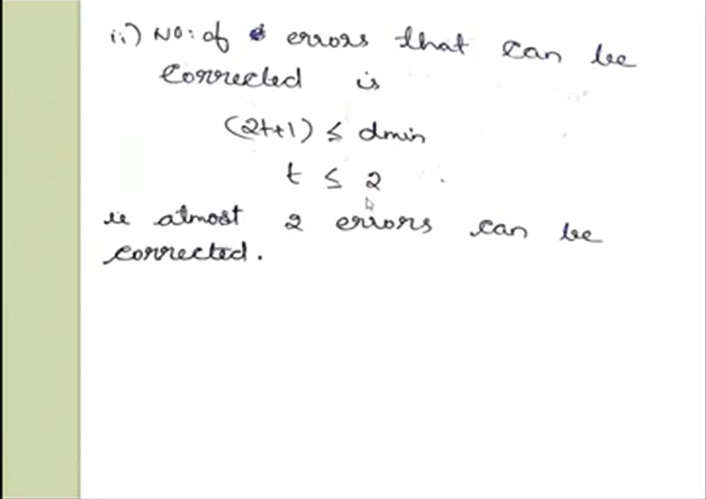 ii) NO: of errors that can be
corrected is
(2t+1) ≤ dmin
t ≤ 2
ie atmost 2 errors can be
corrected.